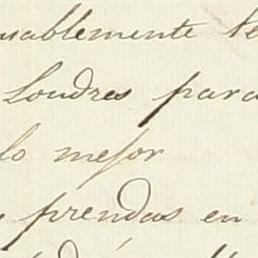 uablemente te
Londres para
lo mejor
prendas en